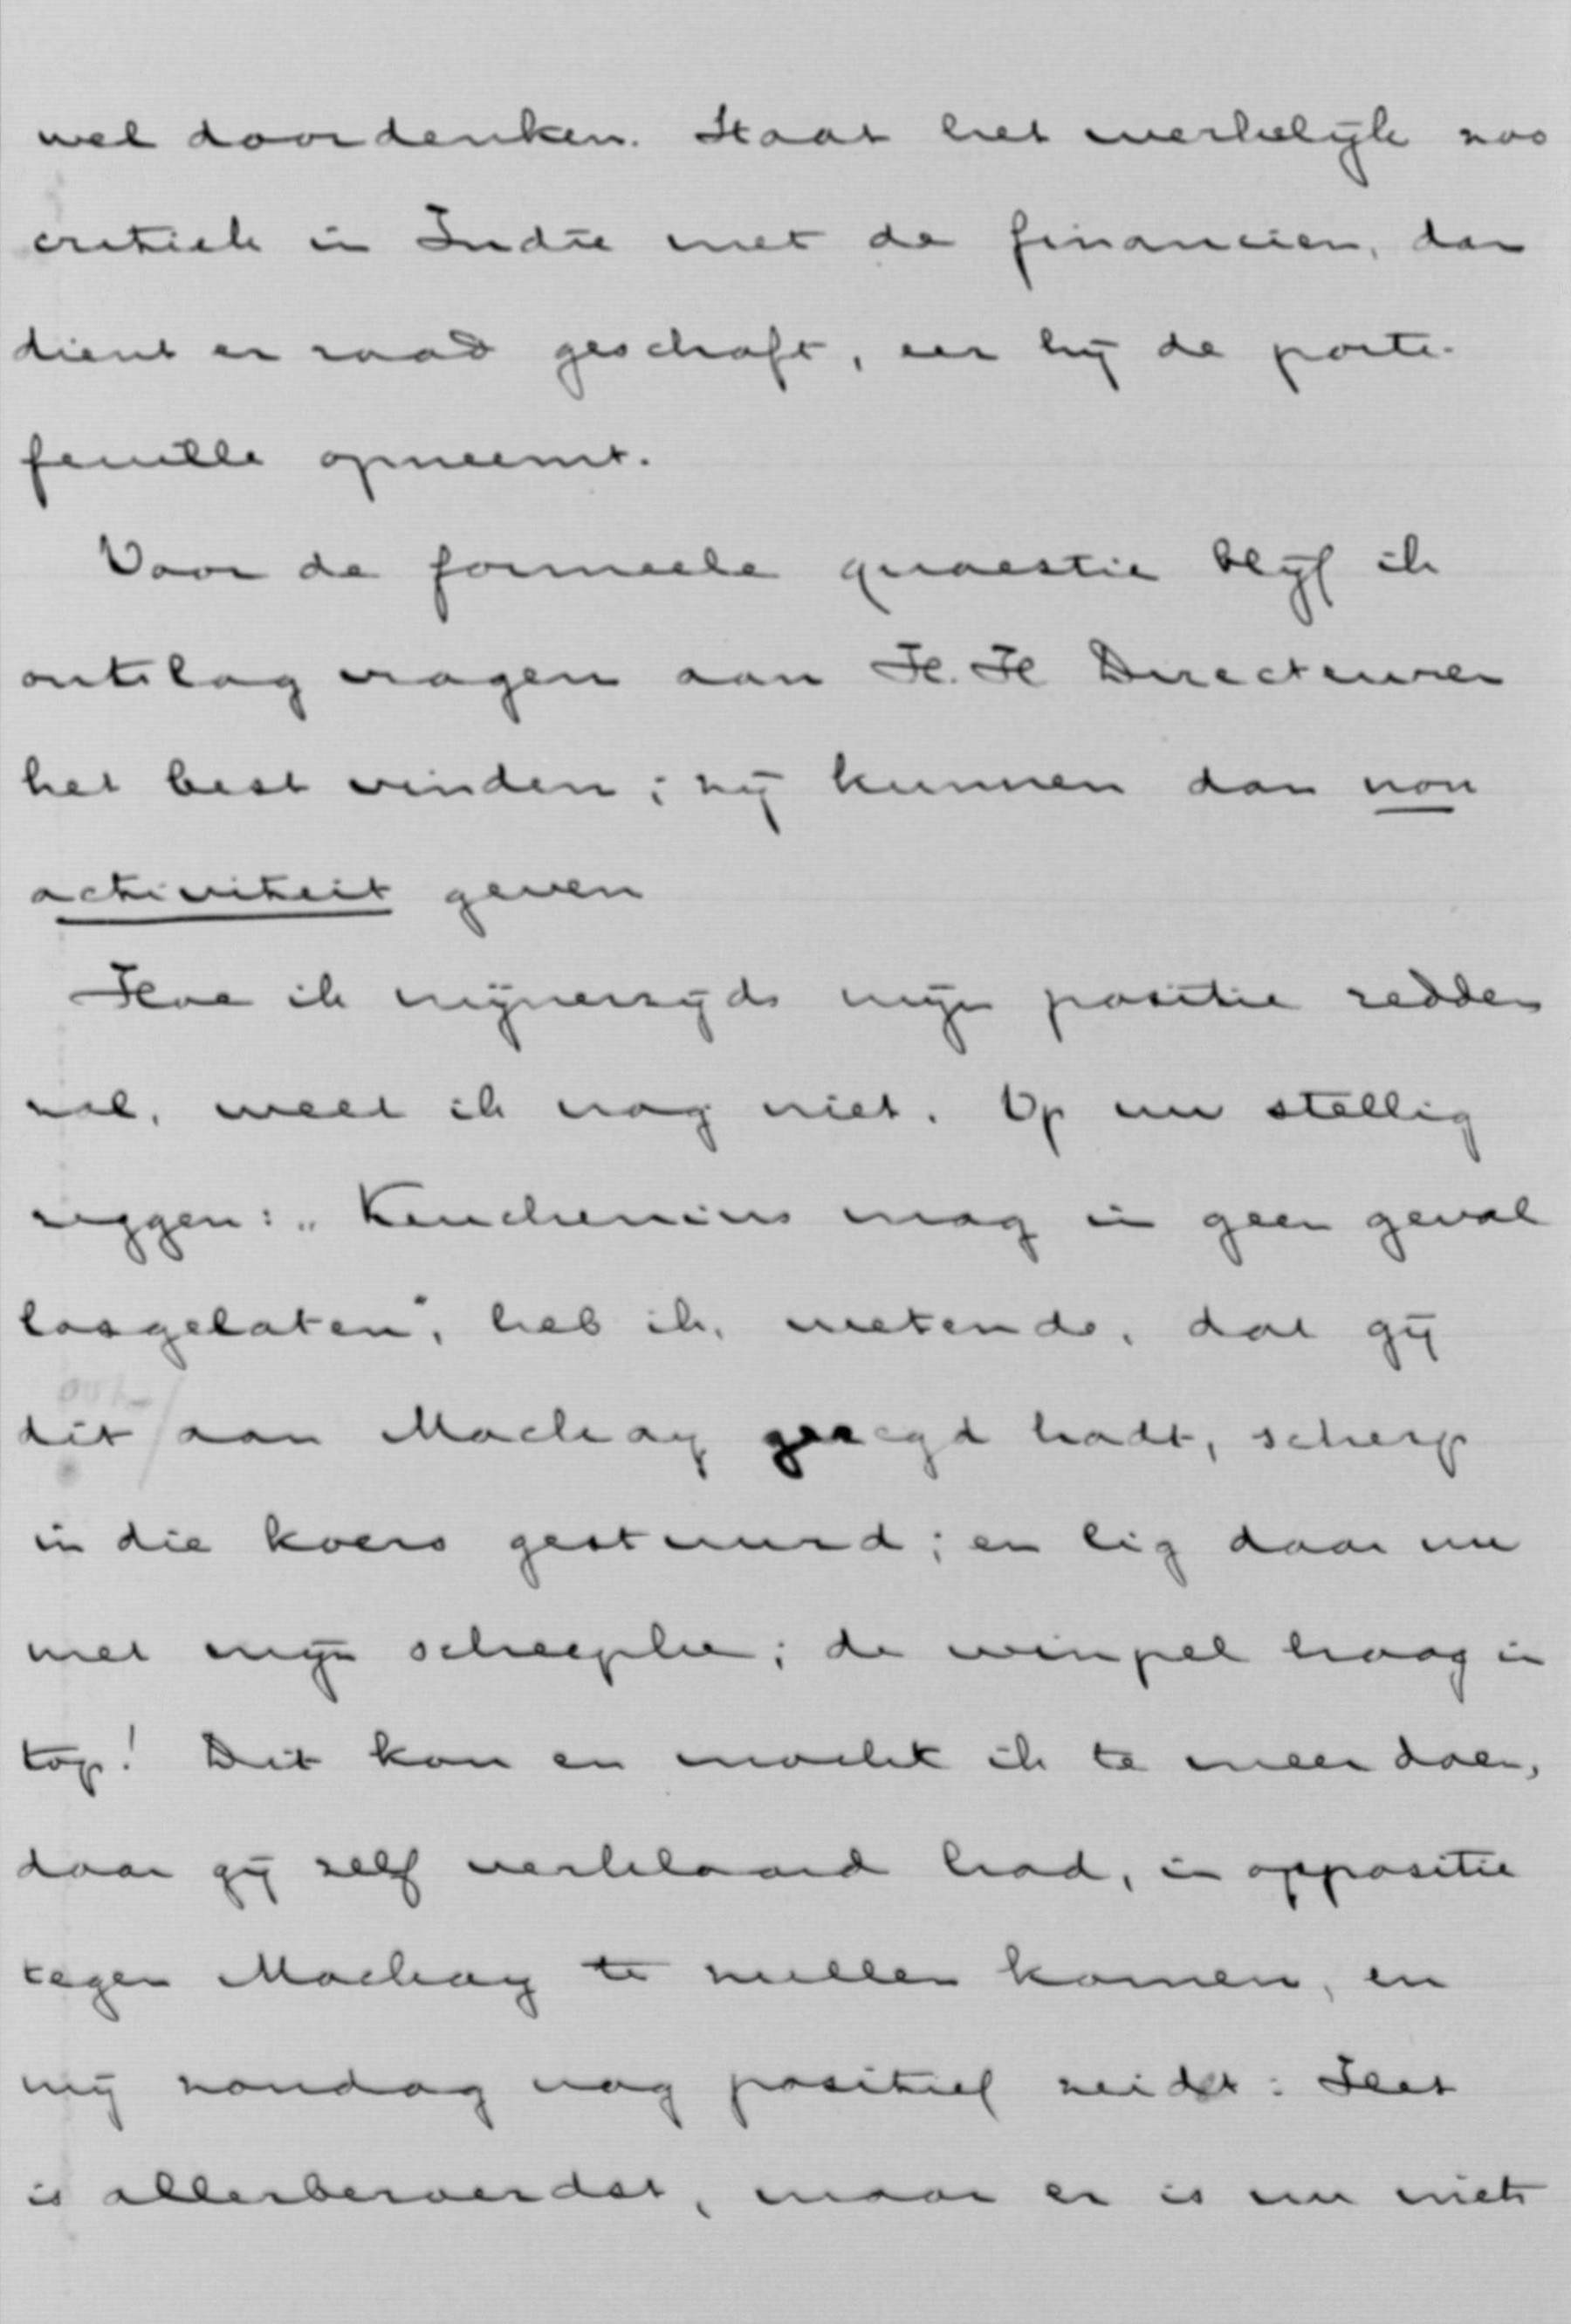 wel doordenken. Staat het werkelijk zoo
critiek in Indie met de financien, dan
dient er raad geschaft, eer hij de porte-
feuille opneemt.
Voor de formeele quaestie blijf ik
ontslag vragen aan H.H Directeuren
het best vinden; zij kunnen dan non
activiteit geven
Hoe ik mijnerzijds mijn positie redden
zal, weet ik nog niet. Op uw stellig
zeggen: „Keuchenius mag in geen geval
losgelaten", heb ik, wetende, dat gij
dit aan Mackay gezegd hadt, scherp
in die koers gestuurd; en lig daar nu
met mijn scheepke; de wimpel hoog in
top! Dit kon en mocht ik te meer doen,
daar gij zelf verklaard had, in oppositie
tegen Mackay te zullen komen, en
mij zondag nog positief zeidet: Het
is allerberoerdst, maar er is nu niets